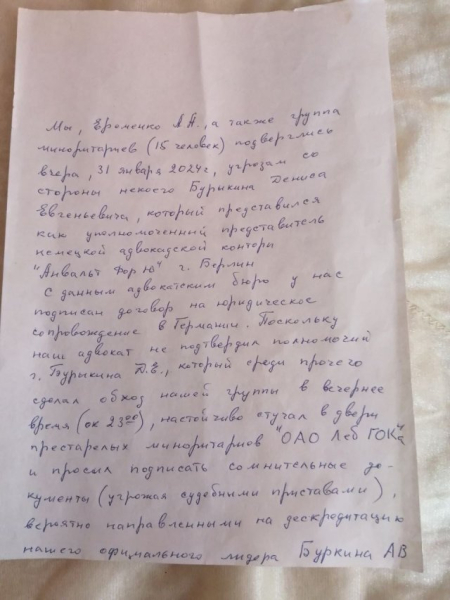 Мы, Еременко А.А., а также группа
миноритариев (15 человек) подверглись
вчера, 31 января 2024г, угрозам со
стороны некоего Бурыкина Дениса
Евгеньевича, который представился
как уполномоченный представитель
немецкой адвокадской конторы
"Анвальт фор Ю" г. Берлин
С данным адвокатским бюро у нас
подписан договор на юридическое
сопровождение в Германии. Поскольку
наш адвокат не подтвердил полномочий
г. Бурыкина Д.Е., который среди прочего
сделал обход нашей группы в вечернее
время (ок 23⁰⁰), настойчиво стучал в двери
престарелых миноритариев "ОАО Леб ГОК"а
и просил подписать сомнительные до-
кументы (угрожая судебными приставами),
вероятно направленными на дескредитацию
нашего официального лидера Буркина АВ